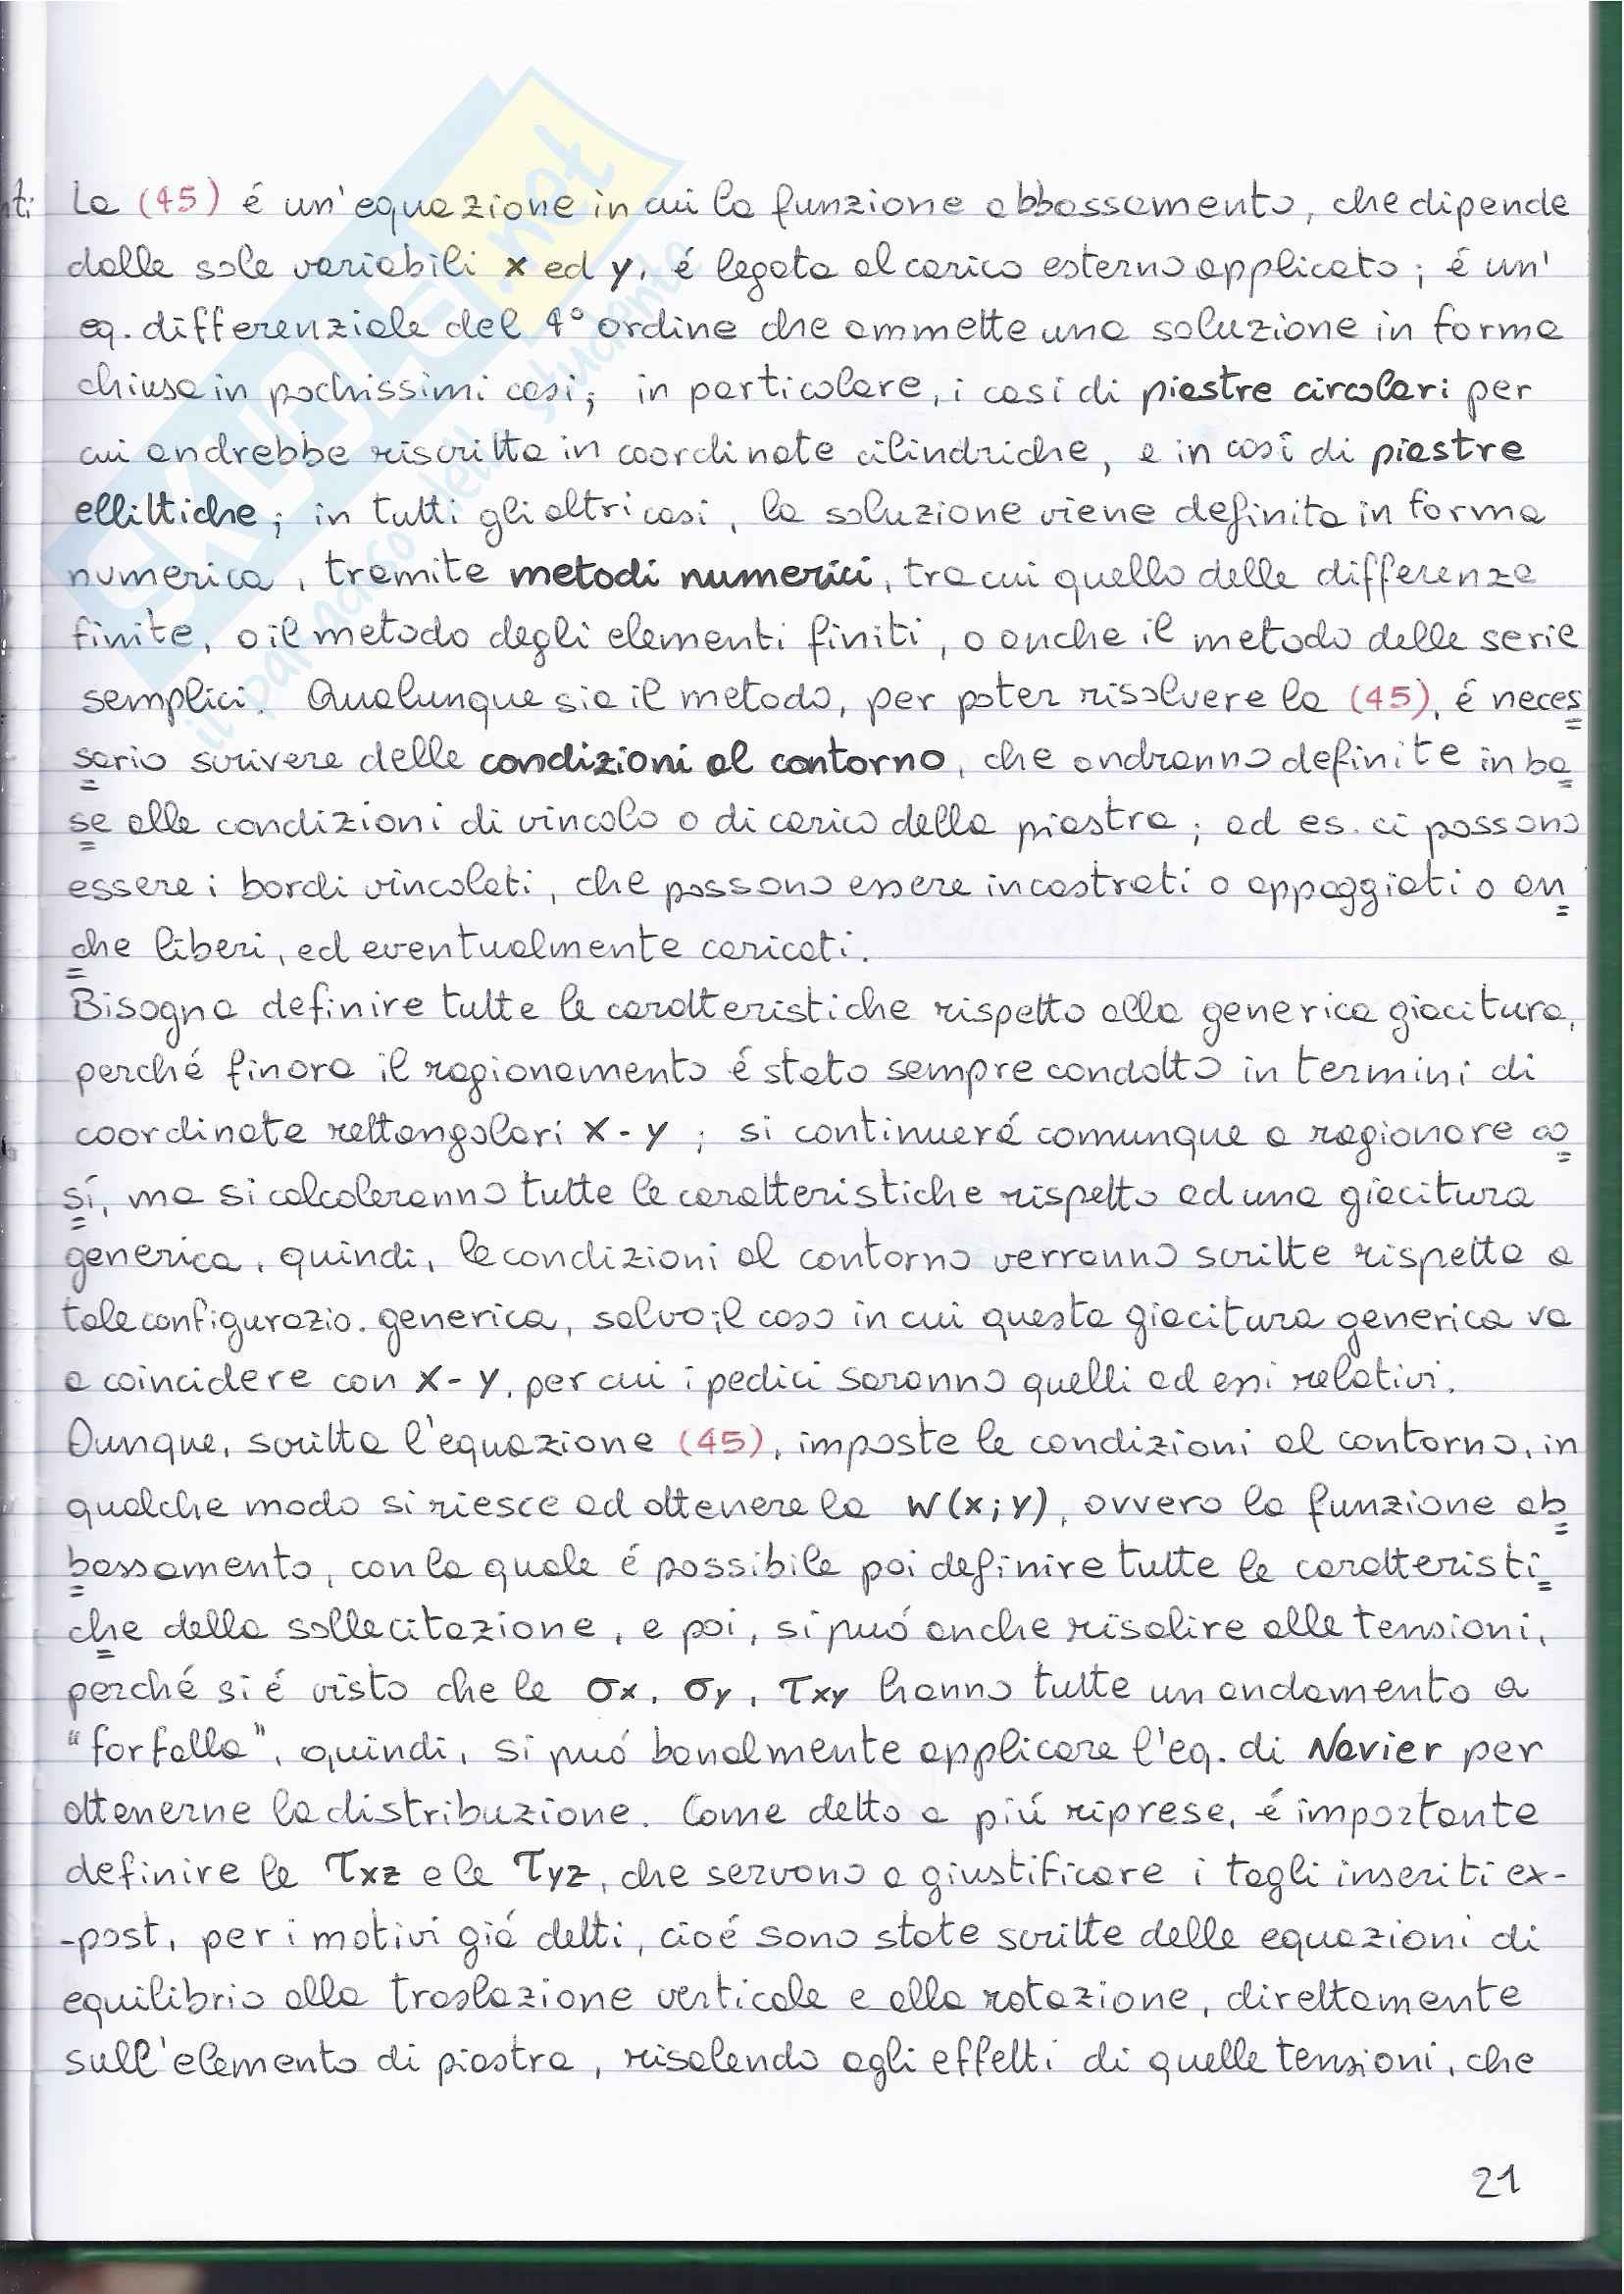 La (45) é un'equazione in cui la funzione abbassamento, che dipende
dalle sole variabili x ed y, é legata al carico esterno applicato; é un'
eq. differenziale del 4° ordine che ammette una soluzione in forma
chiusa in pochissimi casi; in particolare, i casi di piastre circolari per
cui andrebbe riscritta in coordinate cilindriche, e in casi di piastre
ellittiche; in tutti gli altri casi, la soluzione viene definita in forma
numerica, tramite metodi numerici, tra cui quello delle differenze
finite, o il metodo degli elementi finiti, o anche il metodo delle serie
semplici. Qualunque sia il metodo, per poter risolvere la (45), é neces
sario scrivere delle condizioni al contorno, che andranno definite in ba
se alle condizioni di vincolo o di carico della piastra; ad es. ci possono
essere i bordi vincolati, che possono essere incastrati o appoggiati o an
che liberi, ed eventualmente caricati.
Bisogna definire tutte le caratteristiche rispetto alla generica giacitura,
perché finora il ragionamento é stato sempre condotto in termini di
coordinate rettangolari x-y; si continuerá comunque a ragionare co
sí, ma si calcoleranno tutte le caratteristiche rispetto ad una giacitura
generica, quindi, le condizioni al contorno verranno scritte rispetto a
tale configurazio. generica, salvo il caso in cui questa giacitura generica va
a coincidere con x-y, per cui i pedici saranno quelli ad essi relativi.
Dunque, scritta l'equazione (45), imposte le condizioni al contorno, in
qualche modo si riesce ad ottenere la W(x;y), ovvero la funzione ab
bassamento, con la quale é possibile poi definire tutte le caratteristi
che della sollecitazione, e poi, si puó anche risalire alle tensioni,
perché si é visto che le σx, σy, τxy hanno tutte un andamento a
"farfalla", quindi, si puó banalmente applicare l'eq. di Navier per
ottenerne la distribuzione. Come detto a piú riprese, é importante
definire le τxz e le τyz, che servono a giustificare i tagli inseriti ex-
-post, per i motivi giá detti, cioé sono state scritte delle equazioni di
equilibrio alla traslazione verticale e alla rotazione, direttamente
sull'elemento di piastra, risalendo agli effetti di quelle tensioni, che
21
SKUOLA.net
il paradiso dello studente